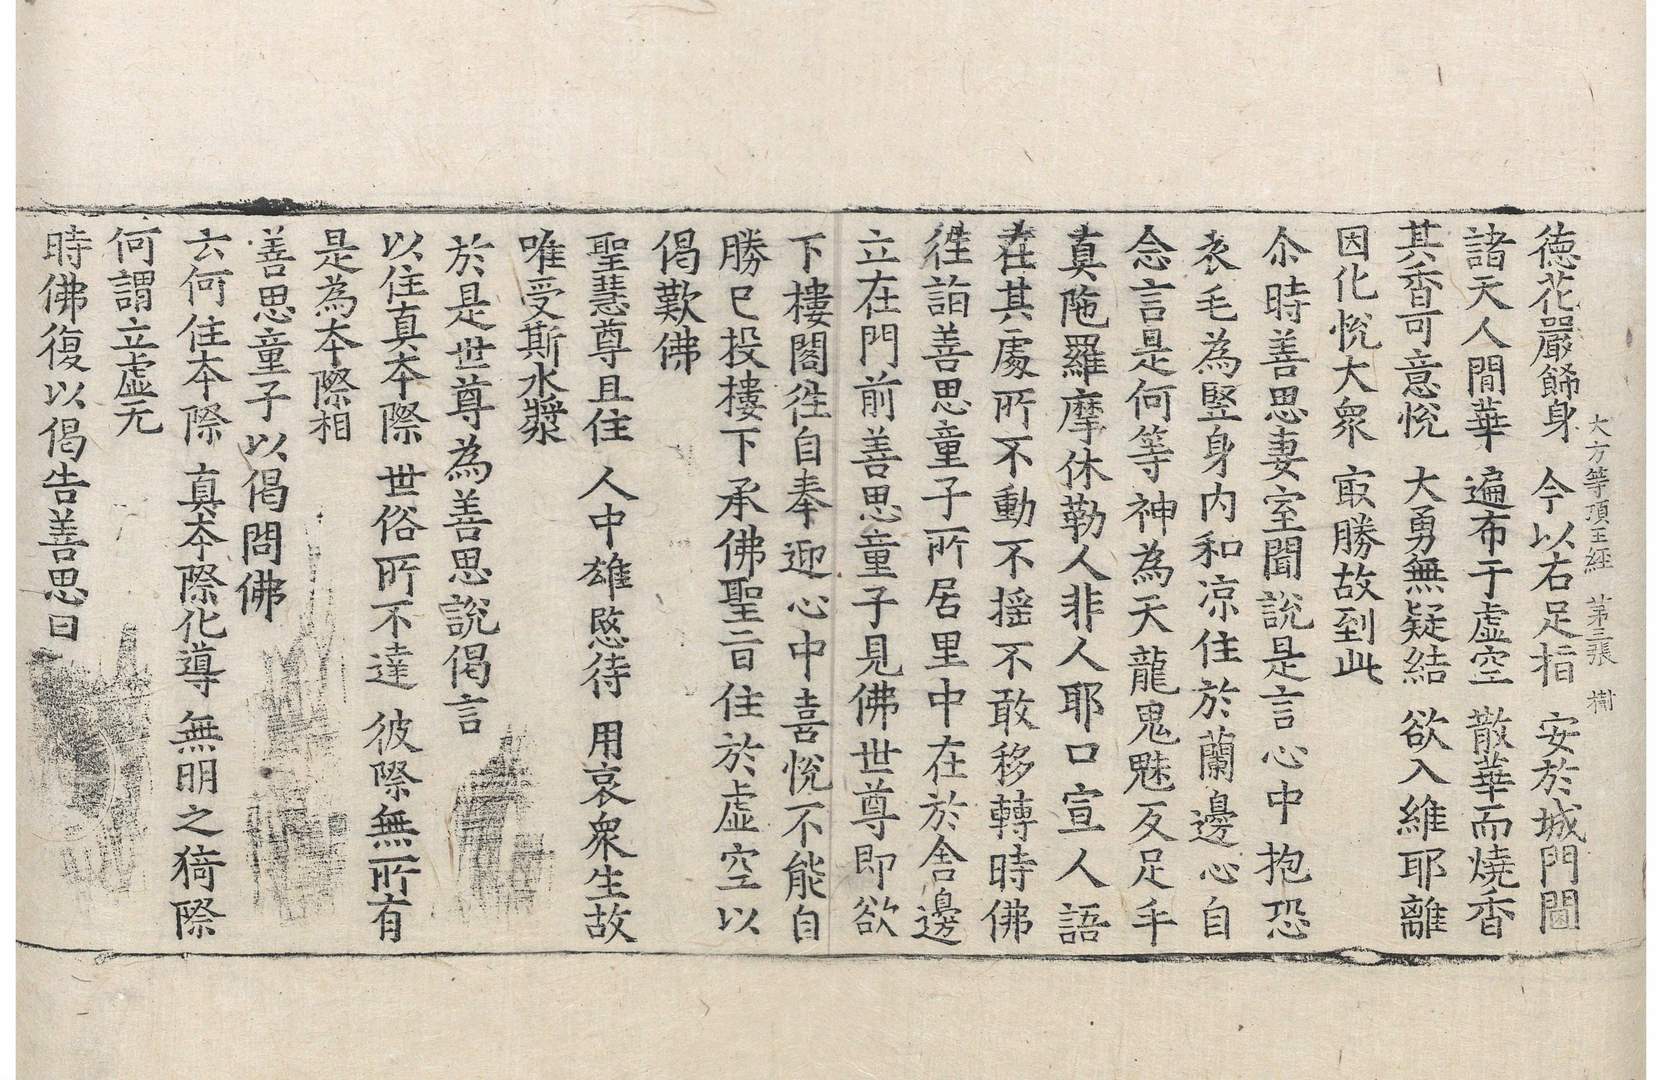 大方等頂王經 第三張 樹
德花嚴飾身 今以右足指 安於城門閫
諸天人間華 遍布于虛空 散華而燒香
其香可意悅 大勇無疑結 欲入維耶離
因化悅大衆 㝡勝故到此
尒時善思妻室聞說是言心中抱恐
衣毛為竪身內和涼住於蘭邊心自
念言是何等神為天龍鬼魅反足手
真陁羅摩休勒人非人耶口宣人語
在其處所不動不搖不敢移轉時佛
徃詣善思童子所居里中在於舍邊
立在門前善思童子見佛世尊即欲
下樓閣徃自奉迎心中喜悅不能自
勝已投樓下承佛聖旨住於虛空以
偈歎佛
聖慧尊且住 人中雄愍待 用哀衆生故
唯受斯水漿
於是世尊為善思說偈言
以住真本際 世俗所不達 彼際無所有
是為本際相
善思童子以偈問佛
云何住本際 真本際化導 無明之猗際
何謂立虛无
時佛復以偈告善思曰